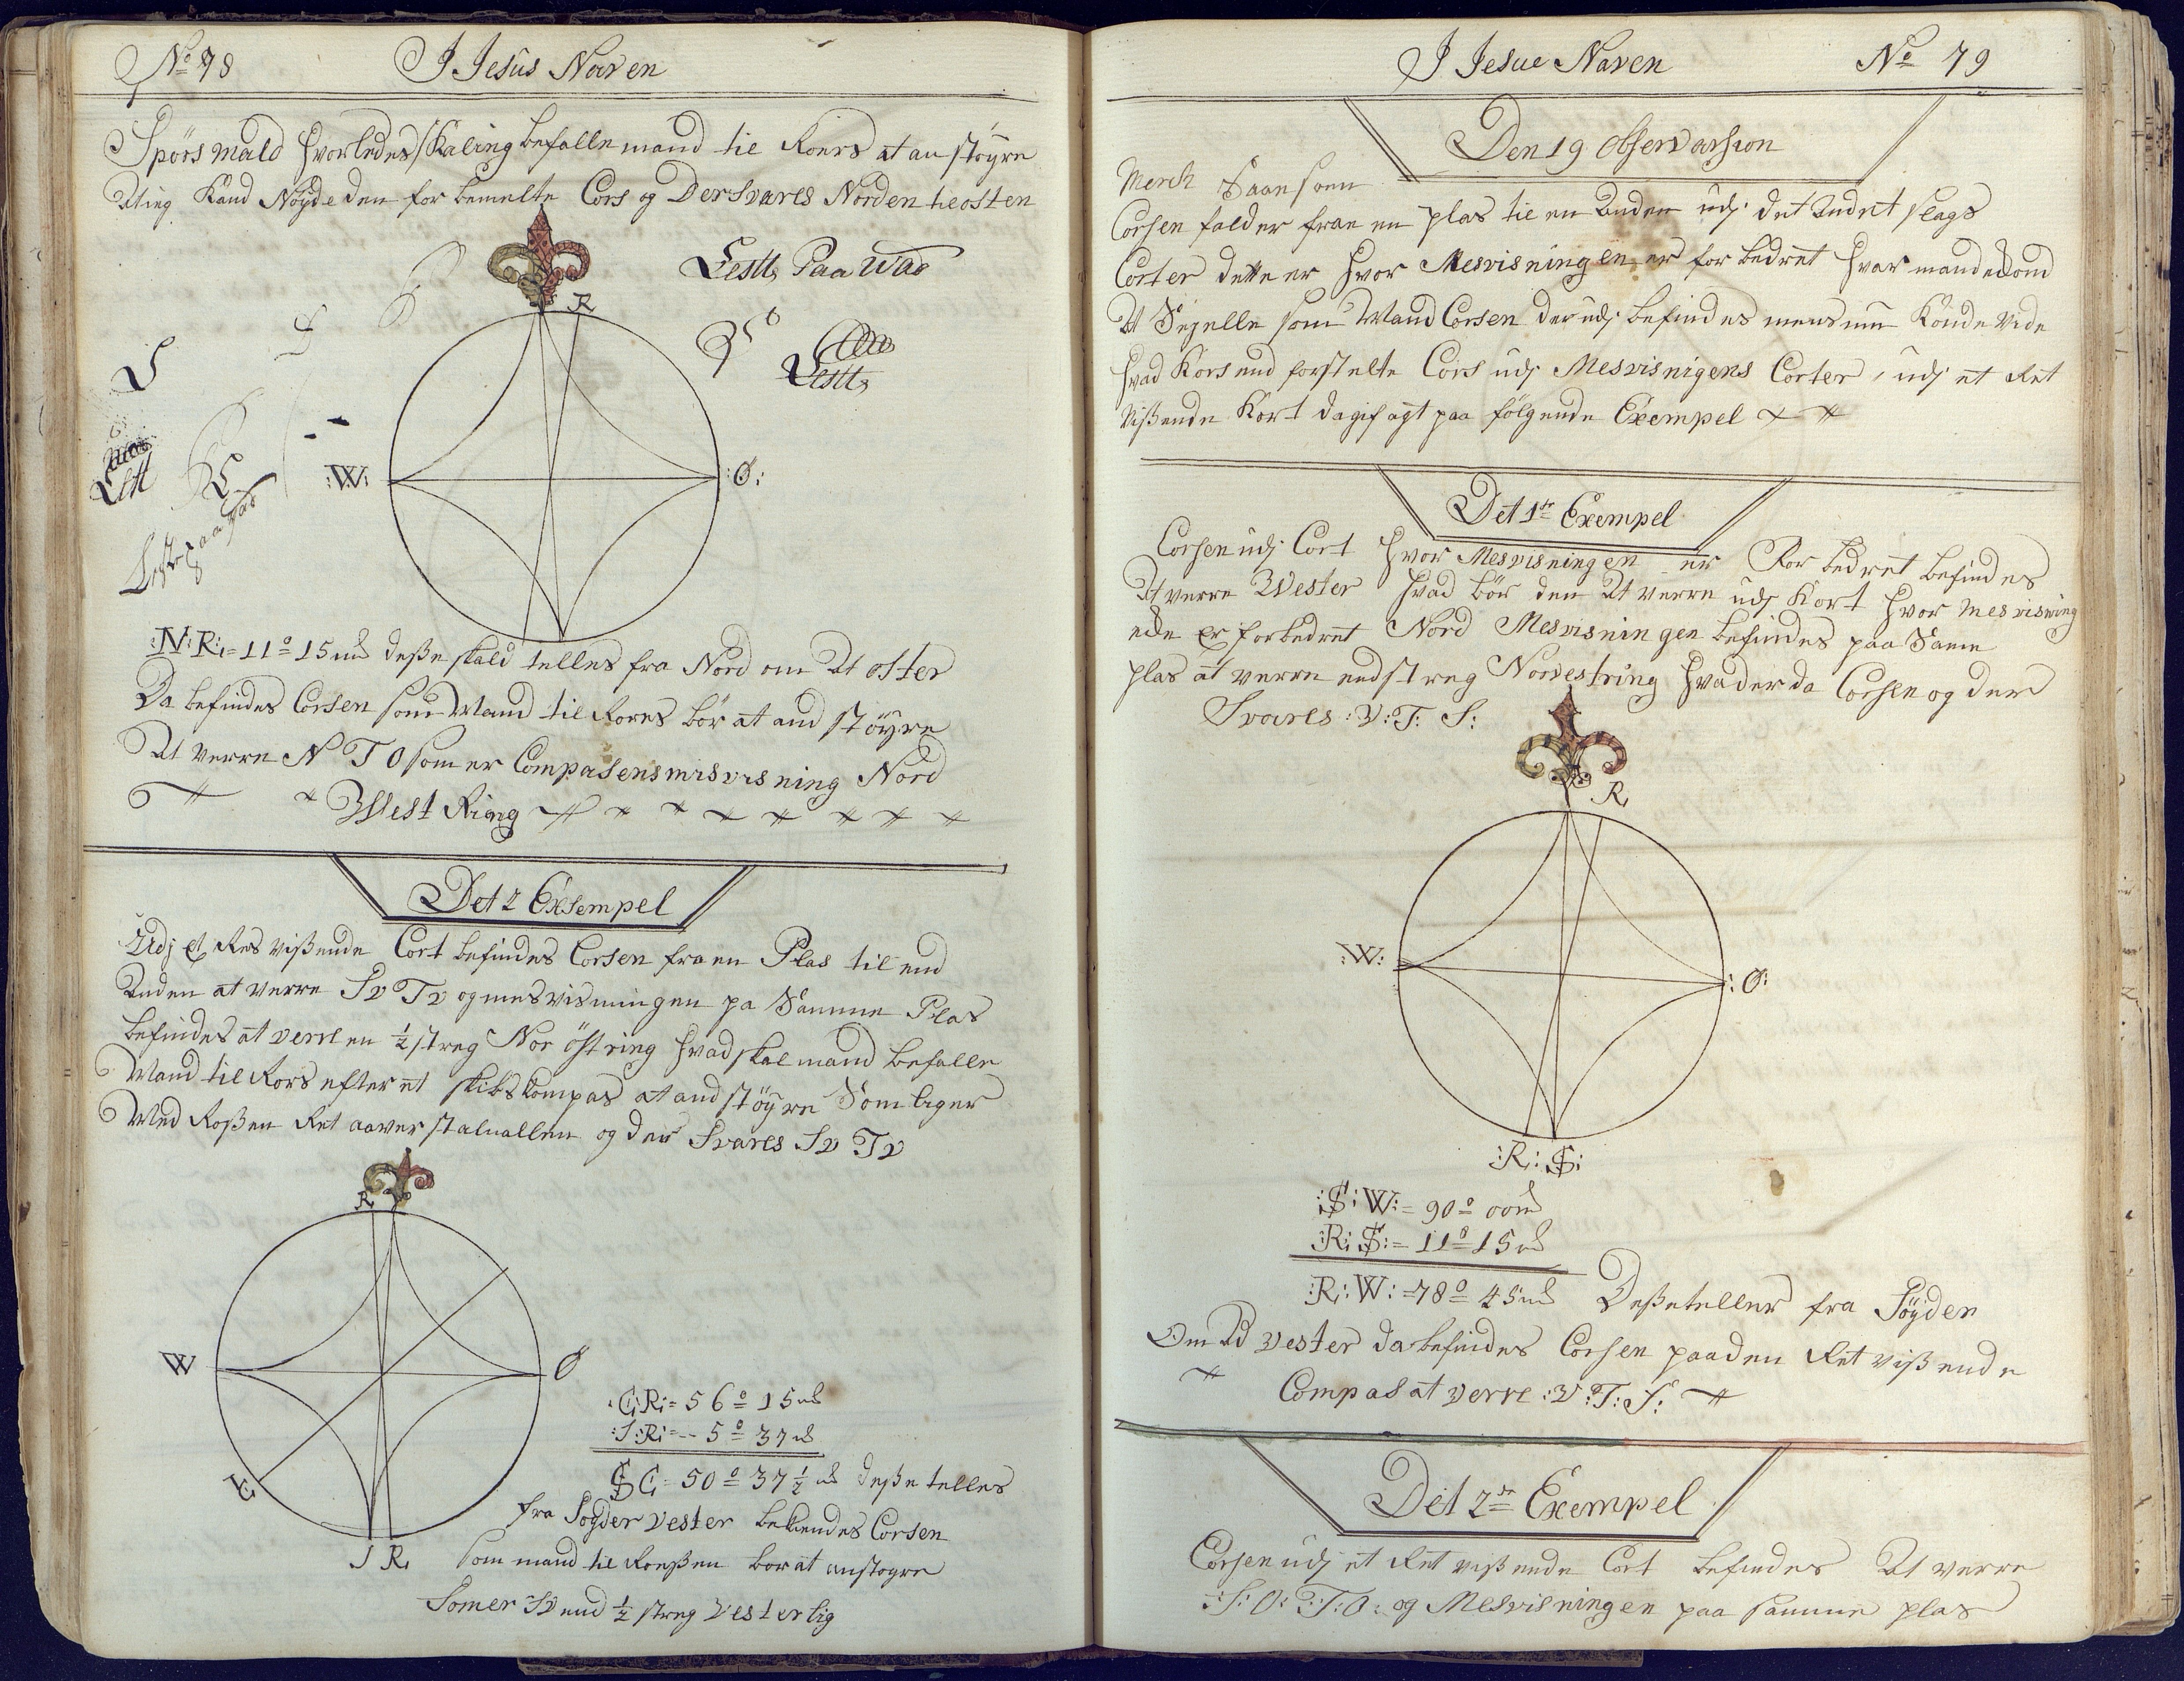 No 78 I Jesus Naven
Spörsmald hvorledes skal ieg befalle mand til Roers at an støÿre
At ieg Kand Nøyde den for bemelte Cors og Der Svares Norden til osten
Lestt Paa Was
R
Lestt
S
:W: :Ø:
Lestt
:N:R:= 11° 15 m desse skald telles fra Nord om At oster
Da befindes Corsen som Mand til Rores bör at and støÿre
At verre N T O som er Compasens misvisning Nord
West Ring
Det 2 Exsempel
Udj et Ret vissende Cort befindes Corsen fra en Plas til end
Anden at verre SV TV og mesvisningen pa Samme Plas
befindes at verre en ½ streg Nor östring hvad skal mand befalle
Mand til Rors efter et skibs kompas at and støÿre Som liger
Med Rossen Ret aaver staluallen og der Svares SV TV
R
W Ø
C
S R
:C:R:= 56° 15 m
:S:R:= -- 5° 37 m
S C:= 50° 37 ½ m desse telles
fra Søyder vester bekendes Corsen
som mand til Roessen bor at anstogre
Som er SV end ½ streg Vesterlig
I Jesue Naven No 79
Den 19 Observarsion
Merck Saansom
Corsen falder fraa en plas til en Anden udj det Andet slags
Corter dette er hvor Mesvisningen er for bedret hvar mand
At Sejelle som Mand Corsen der udj befindes mens mn Konde Vide
hvad Kors end forstelte Cors udj Mesvisnigens Corter, udj et Ret
Vissende Kort da gif agt paa følgende Exempel
Det 1te Exempel
Corsen udj Cort hvor Mesvisningen er For bedret befindes
At verre Wester hvad bör den At verre udj Kort hvor mesvisning
ede er forbedret Nord Mesvisningen befindes paa Same
plas at verre end streg Norvestring hvad er da Corsen og der
Svares :V:T:S:
R
:W: :Ø:
:R: :S:
:S:W:= 90° 00 m
:R:S:= 11° 15 m
:R:W:= 78° 45 m Desse telles fra Søÿden
Om Ad vester da befindes Corsen paa den Ret vissende
Compas at verre :V:T:S:
Det 2de Exempel
Corsen udj et Ret vissende Cort befindes At verre
:S:O:T:O: og Mesvisningen paa samme plas